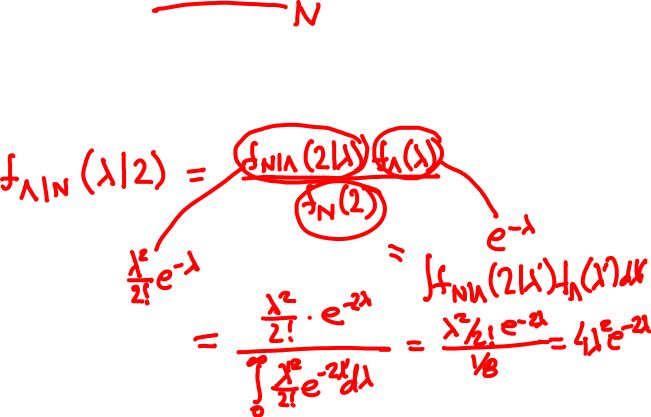 N
f_{Λ|N}(λ|2) = f_{N|Λ}(2|λ) f_Λ(λ) / f_N(2)
λ²/2! e^{-λ}
e^{-λ}
= ∫ f_{N|Λ}(2|λ') f_Λ(λ') dλ'
= (λ²/2! · e^{-2λ}) / (∫_0^∞ λ²/2! e^{-2λ} dλ) = (λ²/2! e^{-2λ}) / (1/8) = 4λ² e^{-2λ}